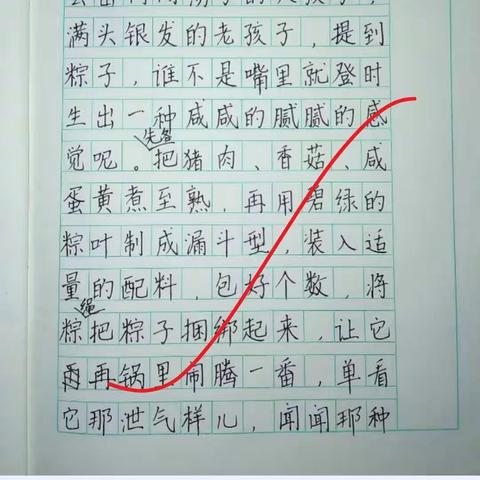 满头银发的老孩子，提到
粽子，谁不是嘴里就登时
生出一种咸咸的腻腻的感
觉呢。把猪肉、香菇、咸
蛋黄煮至熟，再用碧绿的
粽叶制成漏斗型，装入适
量的配料，包好个数，将
绳
粽把粽子捆绑起来，让它
再锅里闹腾一番，单看
它那泄气样儿，闻闻那种